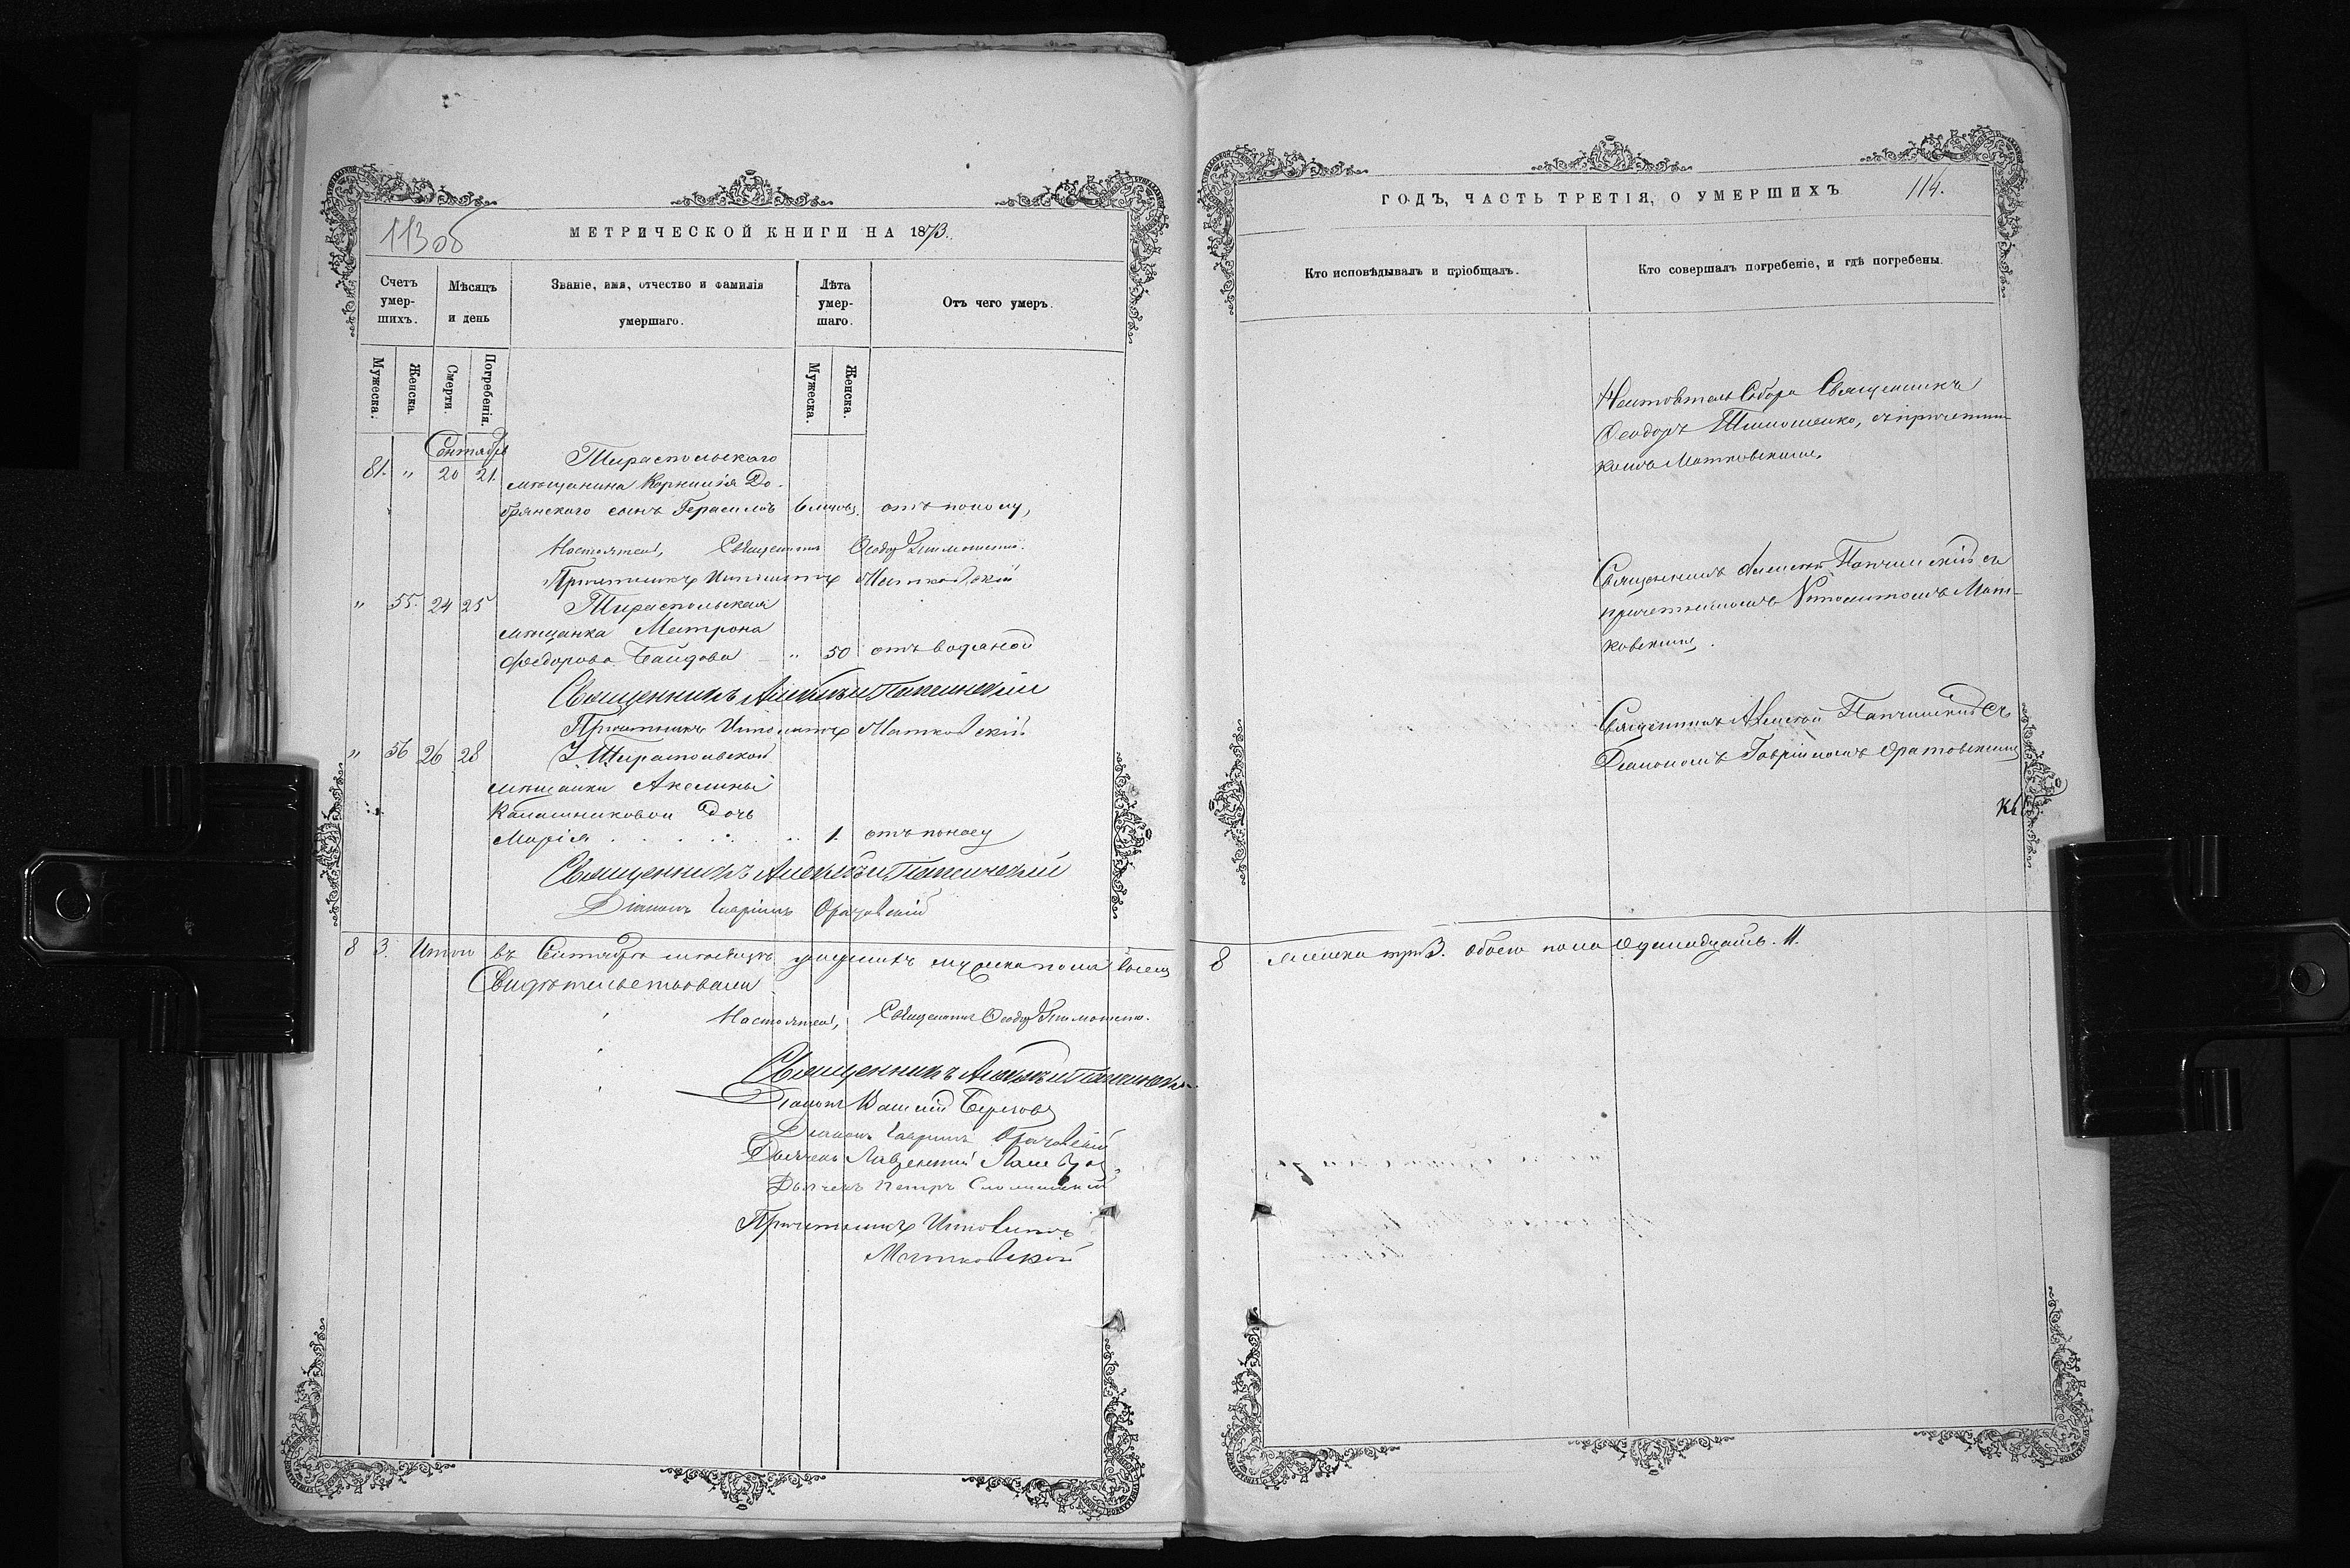 113 об
МЕТРИЧЕСКОЙ КНИГИ НА 1873.
Счетъ умер-шихъ.
Мѣсяцъ и день
Званіе, имя, отчество и фамилія умершаго.
Лѣта умер-шаго.
Отъ чего умеръ.
Мужеска.
Женска.
Смерти.
Погребенія.
Мужеска.
Женска.
Сентябрь
81. " 20 21. Тираспольскаго
мѣщанина Корнилія До-
брянскаго сынъ Герасимъ 6 мѣсяц. отъ поносу,
Настоятель, Священникъ Ѳеодоръ Тимошенко.
Причетникъ Ипполитъ Матковскій
" 55. 24 25 Тираспольская
мѣщанка Матрона
Федорова Байдова " 50 отъ водяной
Священникъ Алексѣй Папчинскій
Причетникъ Ипполитъ Матковскій
" 56 26 28 Тираспольской
мѣщанки Акелины
Калашниковой дочь
Марія 1. отъ поносу
Священникъ Алексѣй Папчинскій
Діаконъ Гавріилъ Оратовскій
8 3. Итого въ Сентябрѣ мѣсяцѣ умершихъ мужеска пола восемь
Свидѣтельствовали
Настоятель, Священникъ Ѳеодоръ Тимошенко.
Священникъ Алексѣй Папчинскій
Діаконъ Василій
Діаконъ Гавріилъ Оратовскій
Дьячекъ Лаврентій
Дьячекъ Петръ
Причетникъ Ипполитъ
Матковскій
ГОДЪ, ЧАСТЬ ТРЕТІЯ, О УМЕРШИХЪ
114.
Кто исповѣдывалъ и пріобщалъ.
Кто совершалъ погребеніе, и гдѣ погребены.
Настоятель Собора Священникъ
Ѳеодоръ Тимошенко, съ причетни-
комъ Матковскимъ.
Священникъ Алексѣй Папчинскій съ
причетникомъ Ипполитомъ Мат-
ковскимъ.
Священникъ Алексѣй Папчинскій съ
Діакономъ Гавріиломъ Оратовскимъ
8 женска три 3. обоего пола одинадцать. 11.